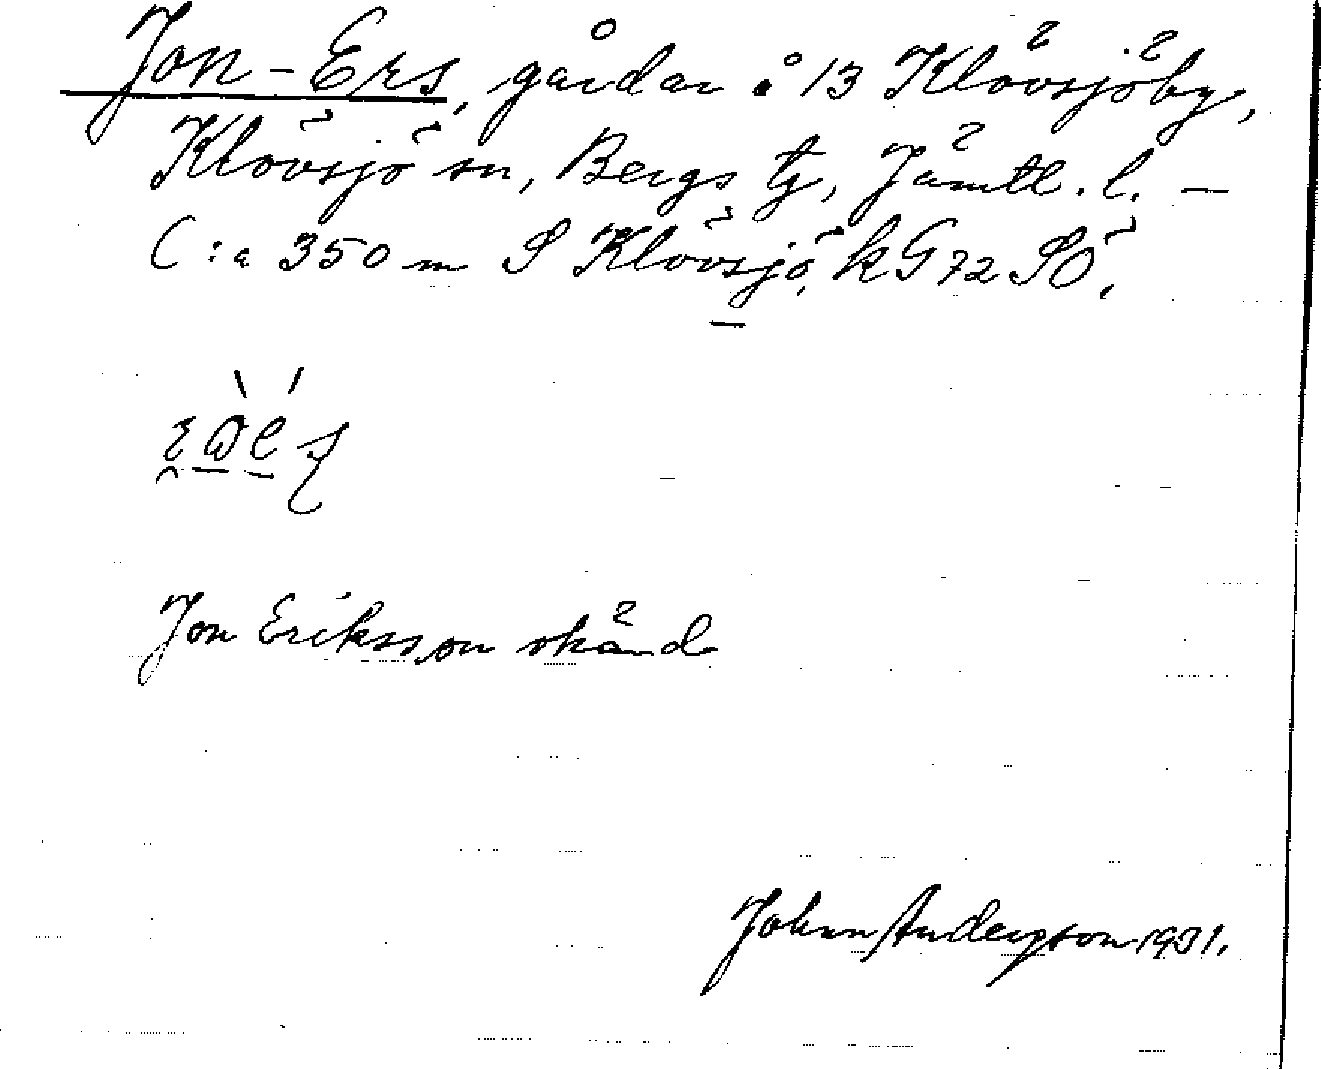 Jon-Ers, gårdar å 13 Klövsjöby,
Klövsjö sn, Bergs tg, Jämtl. l. —
C:a 350 m S Klövsjö k G72 SÖ.
Jon Eriksson okänd
Johan Andersson 1931.